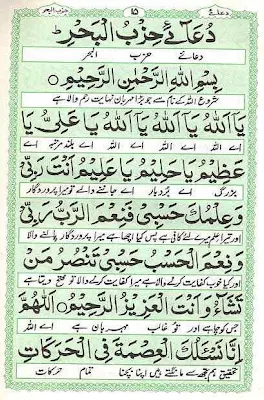 دعائے ۱۵ حزب البحر
دُعَآئے حِزْبُ الْبَحْر
دعائے حزب البحر
بِسْمِ اللهِ الرَّحْمٰنِ الرَّحِيْمِ ○
شروع اللہ کے نام سے جو بڑا مہربان نہایت رحم والا ہے
يَآ اَللهُ يَآ اَللهُ يَآ اَللهُ يَا عَلِيُّ يَا
اے اللہ اے اللہ اے اللہ اے بلند مرتبہ اے
عَظِيْمُ يَا حَلِيْمُ يَا عَلِيْمُ اَنْتَ رَبِّيْ
بزرگی اے بردبار اے جاننے والے تو میرا پروردگار
وَعِلْمُكَ حَسْبِيْ فَنِعْمَ الرَّبُّ رَبِّيْ
اور تیرا علم میرے لئے کافی ہے پس کیا اچھا ہے میرا پروردگار پالنے والا
وَنِعْمَ الْحَسْبُ حَسْبِيْ تَنْصُرُ مَنْ
اور کیا خوب کفایت کرنے والا ہے میرا کفایت کرنے والا تو فتح دیتا ہے
تَشَآءُ وَاَنْتَ الْعَزِيْزُ الرَّحِيْمُ ○ اَللّٰهُمَّ
جس کو چاہے اور تو غالب مہربان ہے اے اللہ
اِنَّا نَسْئَلُكَ الْعِصْمَةَ فِى الْحَرَكَاتِ
تحقیق ہم تجھ سے مانگتے ہیں اپنا بچنا تمام حرکات